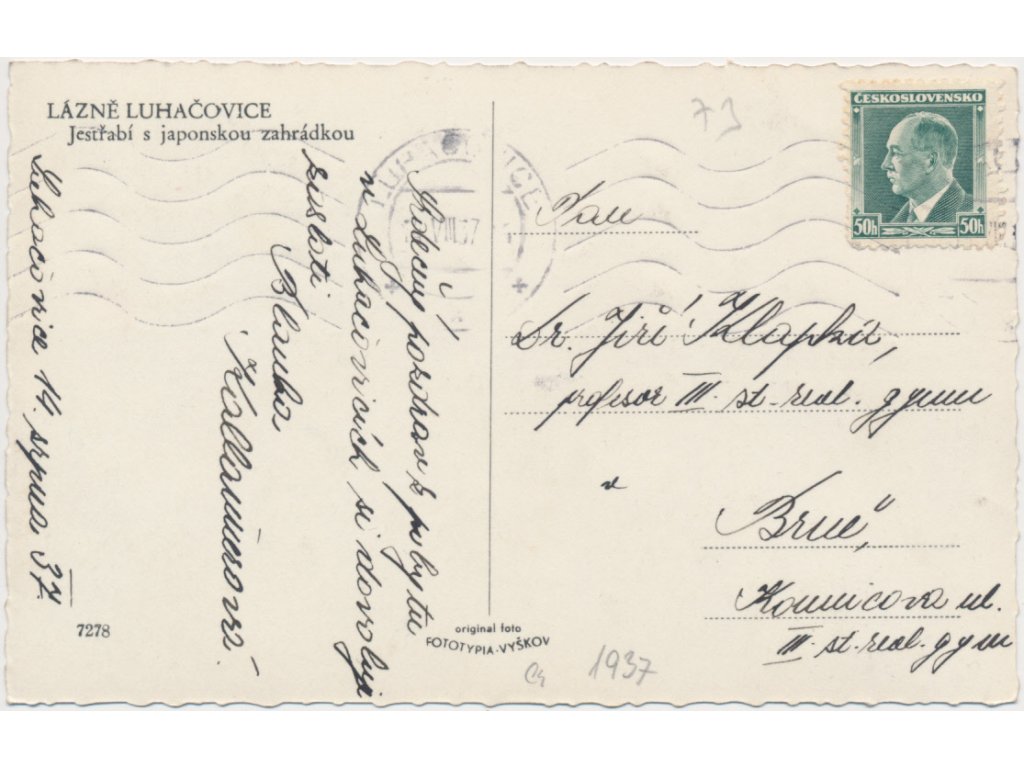 LÁZNĚ LUHAČOVICE
Jestřabí s japonskou zahrádkou
Luhačovice 14. srpna 37
Srdečný pozdrav z pobytu
v Luhačovicích si dovoluji
zaslati
Blanka
Kallanerová
7278
original foto
FOTOTYPIA-VYŠKOV
1937
73
ČESKOSLOVENSKO
50h 50h
Pan
Dr. Jiří Klapka,
profesor III. st. real. gymn
v
Brně,
Kounicova ul.
III. st. real. gymn